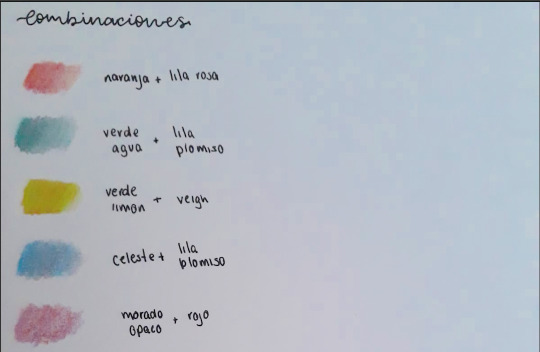 combinaciones
naranja + lila rosa
verde agua + lila plomiso
verde limón + veigh
celeste + lila plomiso
morado opaco + rojo